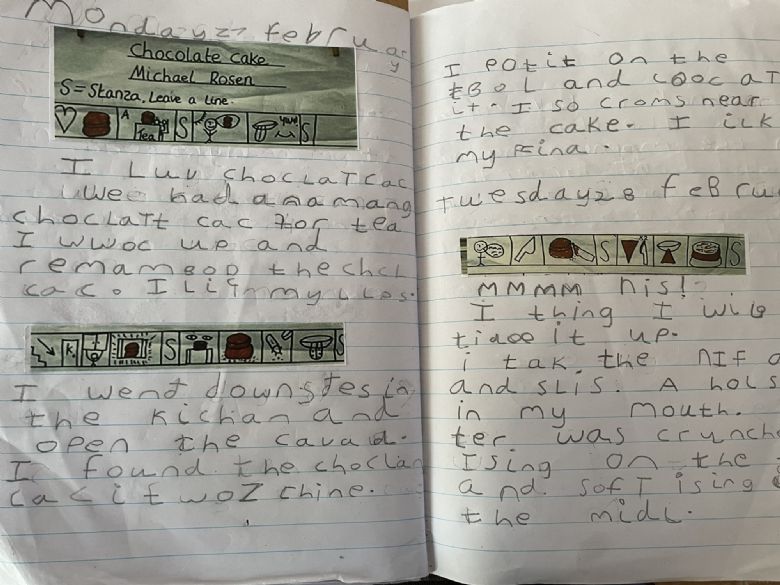 Mondayz7 februar
y
Chocolate cake
Michael Rosen
S = Stanza, Leave a line.
A Tea S Yum S
I Luv choclaTcac
Wee had anamang
choclaTT cac for tea
I wwoc up and
remamBOD the chcl
cac. I Lic my LLes.
K. S S
I went downstes in
the kichan and
open the cavad.
I found the choclan
cac it woz chine.
I potit on the
tBOL and cooc aT
it. I so croms near
the cake. I ick
my Fina.
twesdayz8 feBru
S S
MMMM nis!
I thing I wil
tidee it up.
i tak the nif a
and sLis. A hols
in my mouth.
ter was crunch
Ising on the
and sofT ising
the midl.